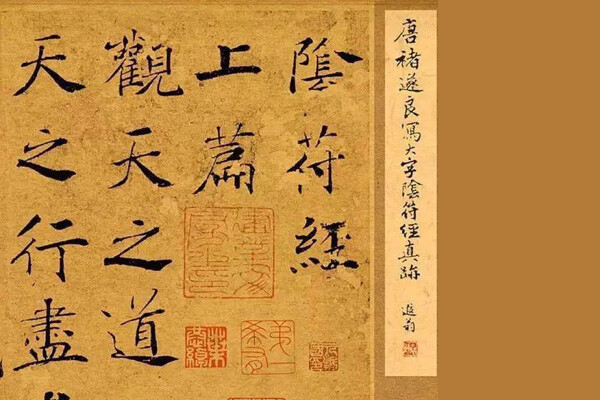 唐褚遂良寫大字陰符經真跡
遐翁
陰符經
上篇
觀天之道
天之行盡